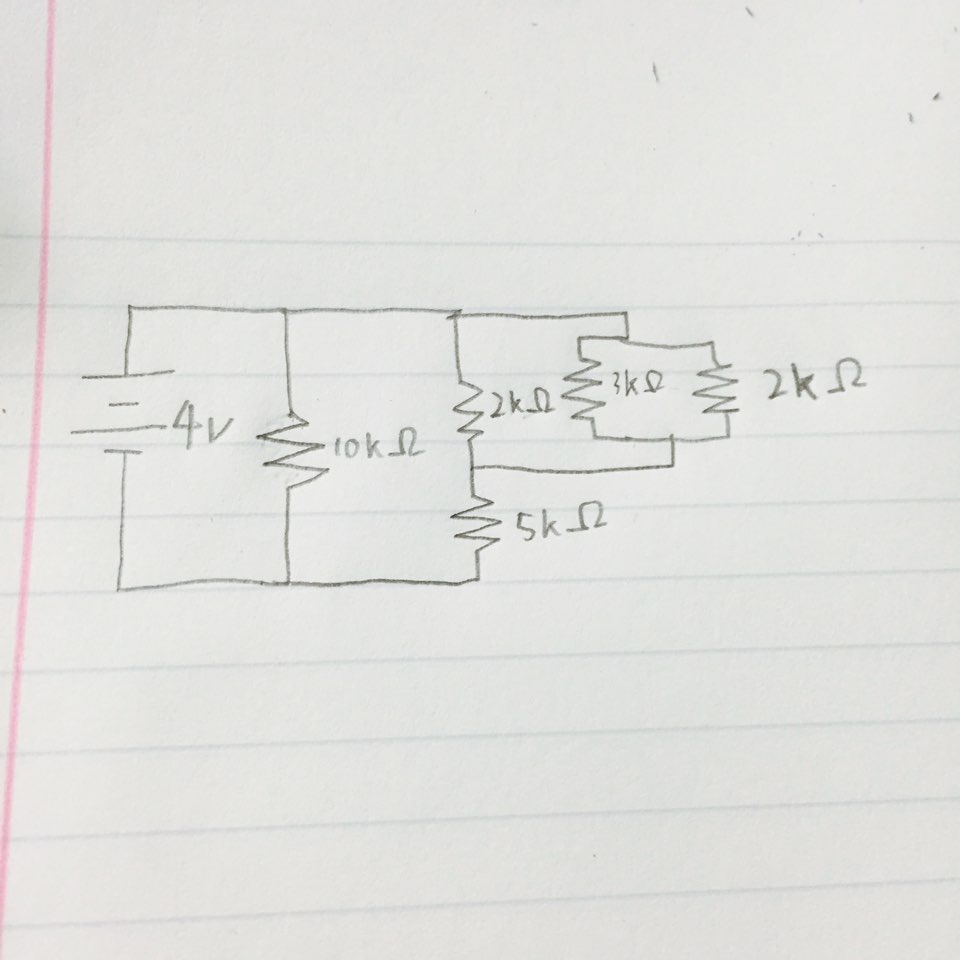 4V
10kΩ
2kΩ
3kΩ
2kΩ
5kΩ